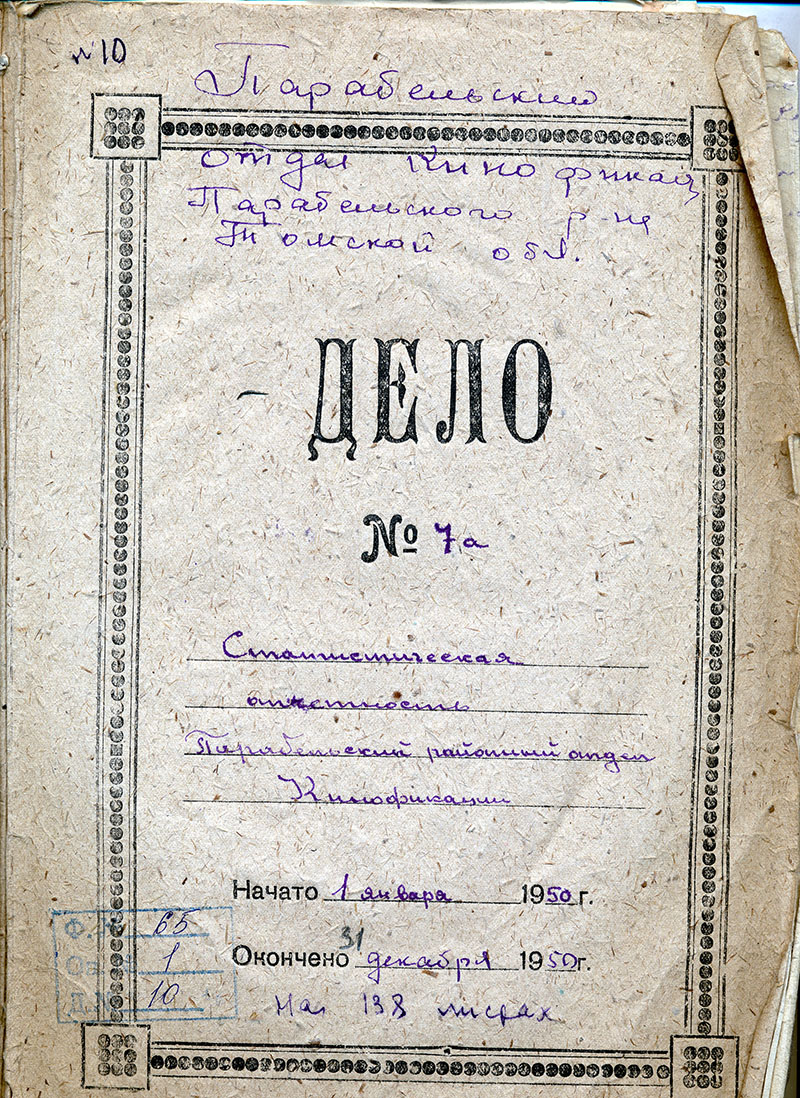 №10
Парабельский
отдел Кинофикац
Парабельского р-на
Томской обл.
ДЕЛО
№ 7а
Статистическая
отчетность
Парабельский районный отдел
Кинофикации
Начато 1 января 1950 г.
Окончено 31 декабря 1950 г.
На 138 листах
Ф. № 65
Оп. № 1
Д. № 10